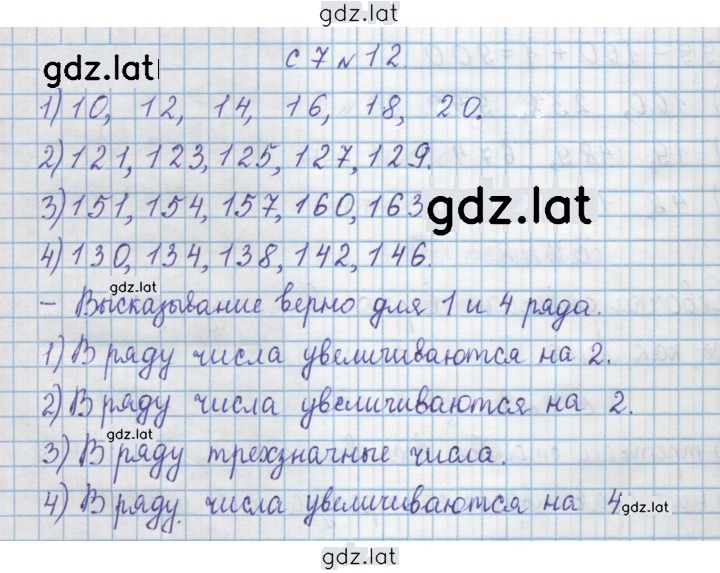 gdz.lat
с 7 № 12.
gdz.lat
1) 10, 12, 14, 16, 18, 20.
2) 121, 123, 125, 127, 129.
3) 151, 154, 157, 160, 163
gdz.lat
4) 130, 134, 138, 142, 146.
gdz.lat
– Высказывание верно для 1 и 4 ряда.
1) В ряду числа увеличиваются на 2.
2) В ряду числа увеличиваются на 2.
gdz.lat
3) В ряду трехзначные числа.
4) В ряду числа увеличиваются на 4
gdz.lat
gdz.lat